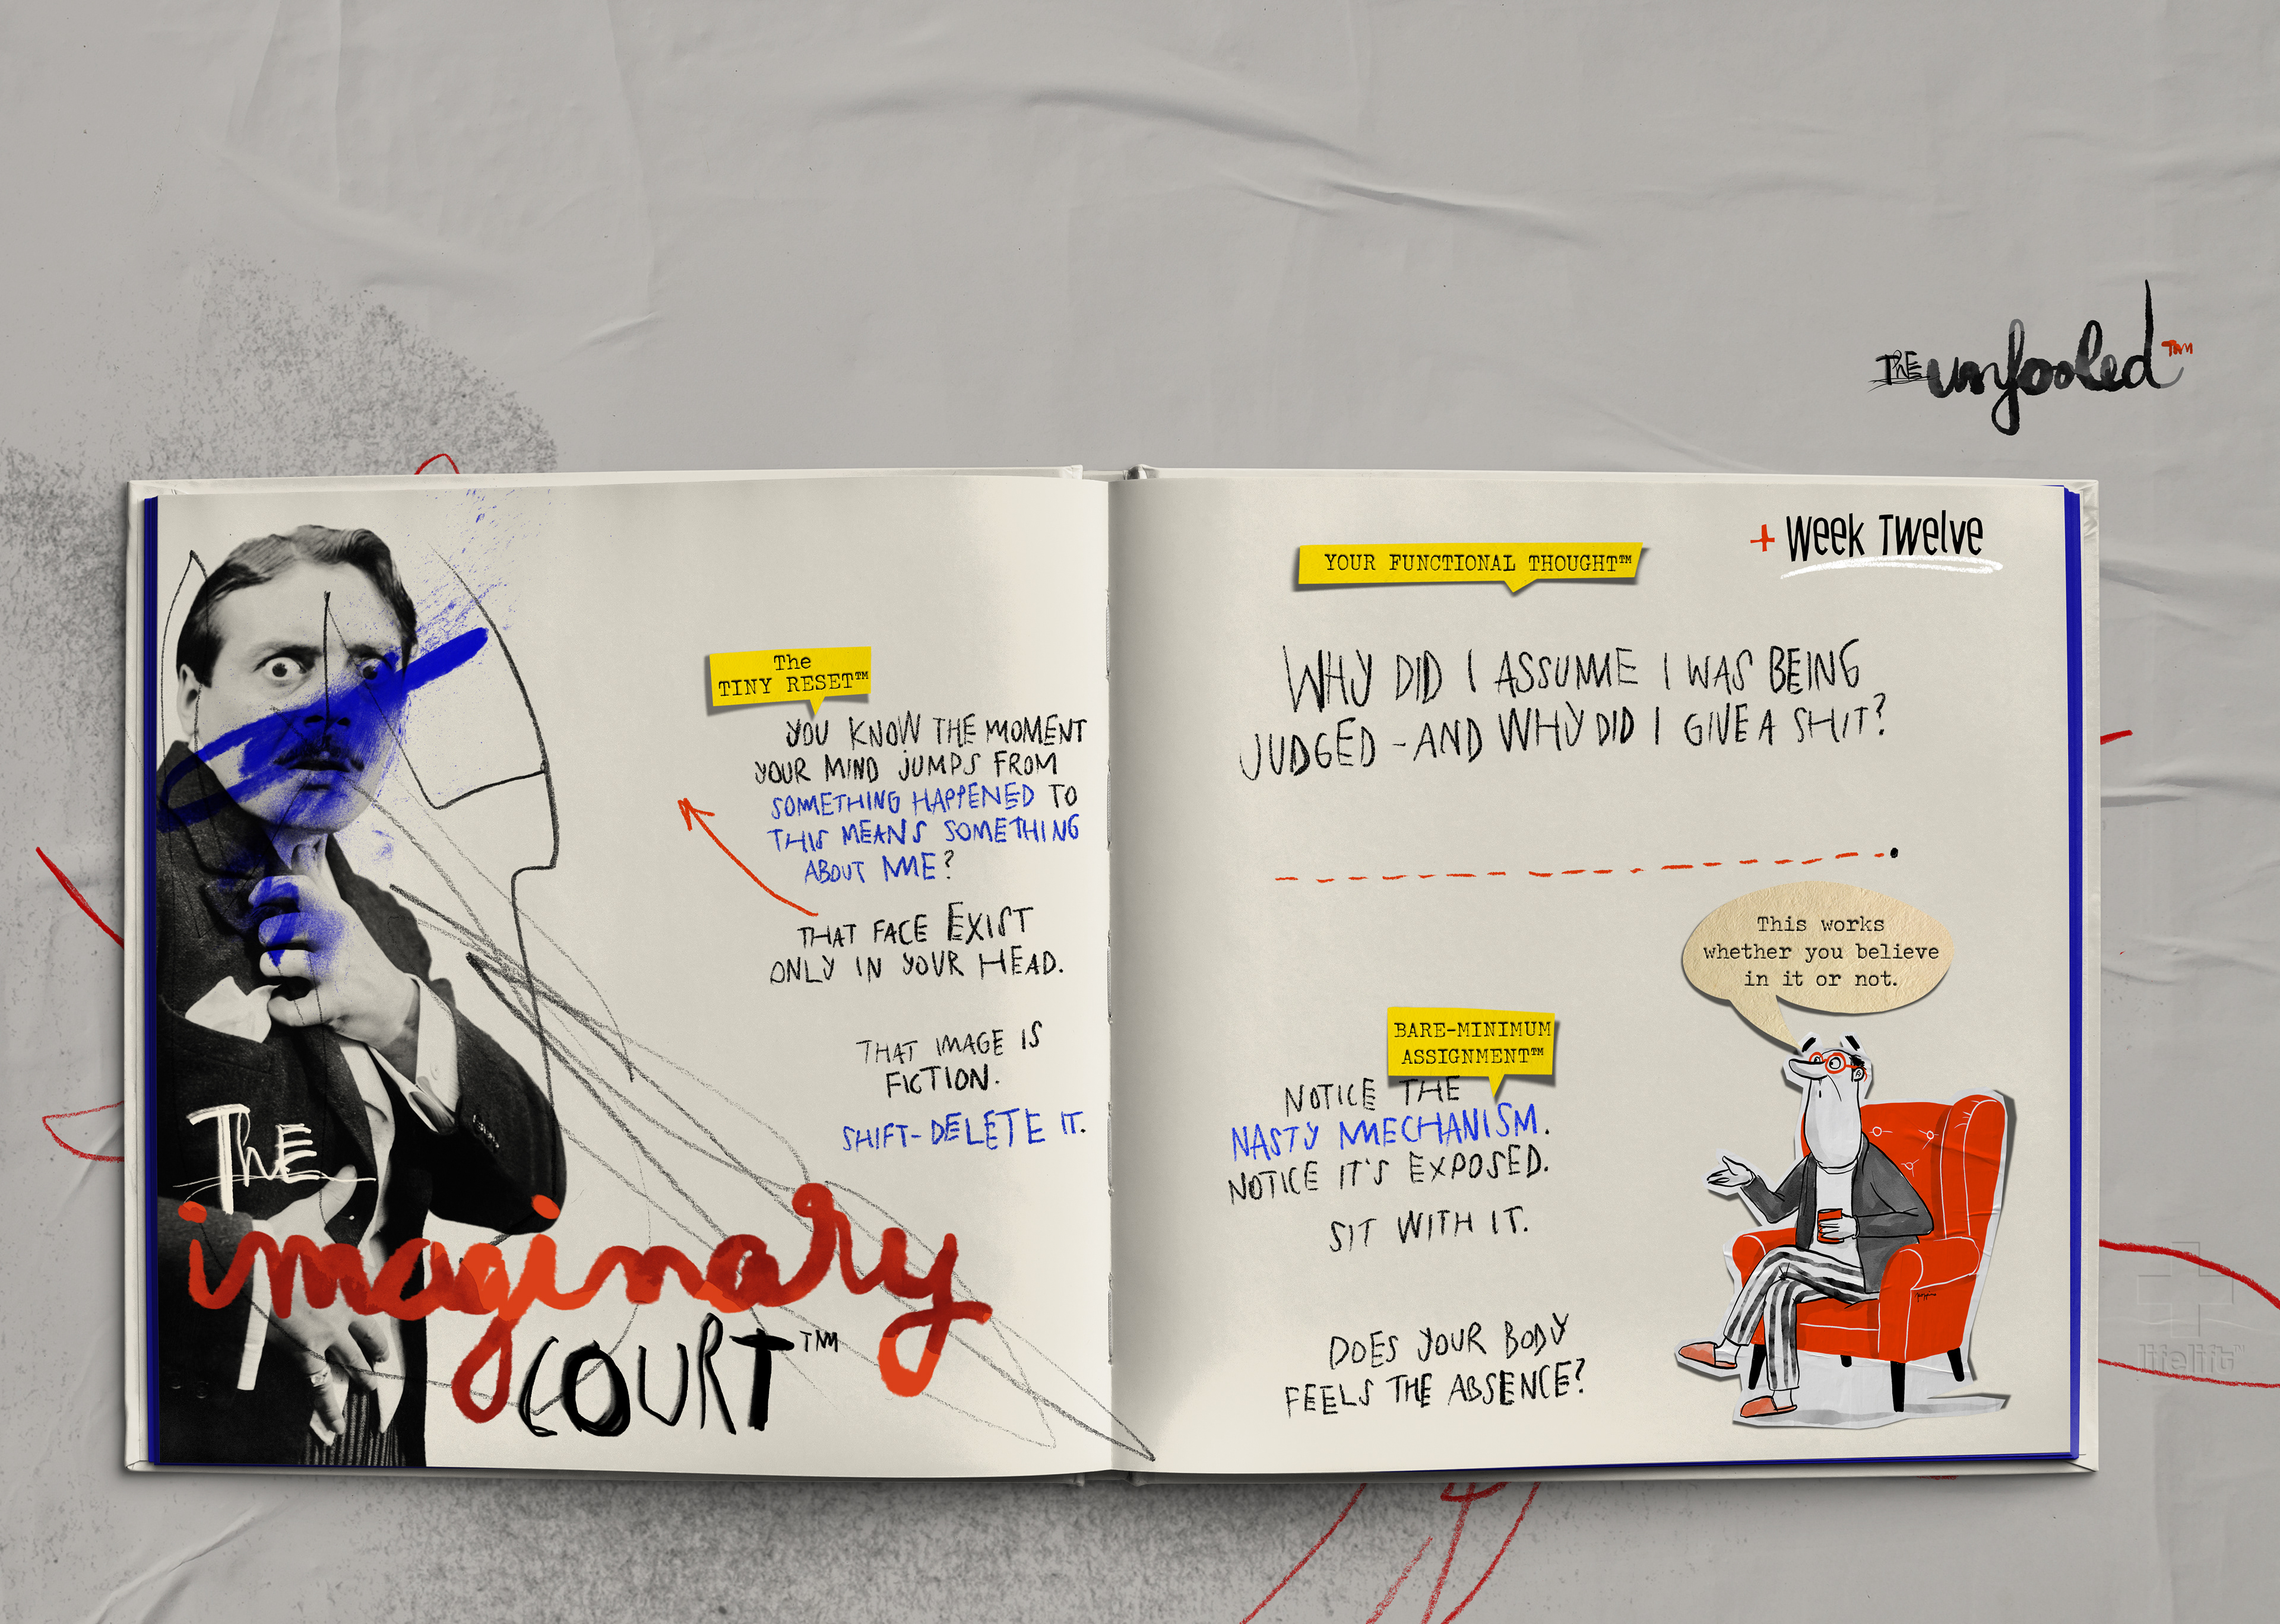 THE unfooled TM
The
TINY RESET™
YOU KNOW THE MOMENT
YOUR MIND JUMPS FROM
SOMETHING HAPPENED TO
THIS MEANS SOMETHING
ABOUT ME?
THAT FACE EXIST
ONLY IN YOUR HEAD.
THAT IMAGE IS
FICTION.
SHIFT-DELETE IT.
THE
imaginary
COURT TM
+ Week Twelve
YOUR FUNCTIONAL THOUGHT™
WHY DID I ASSUME I WAS BEING
JUDGED - AND WHY DID I GIVE A SHIT?
This works
whether you believe
in it or not.
BARE-MINIMUM
ASSIGNMENT™
NOTICE THE
NASTY MECHANISM.
NOTICE IT'S EXPOSED.
SIT WITH IT.
DOES YOUR BODY
FEELS THE ABSENCE?
lifelift™